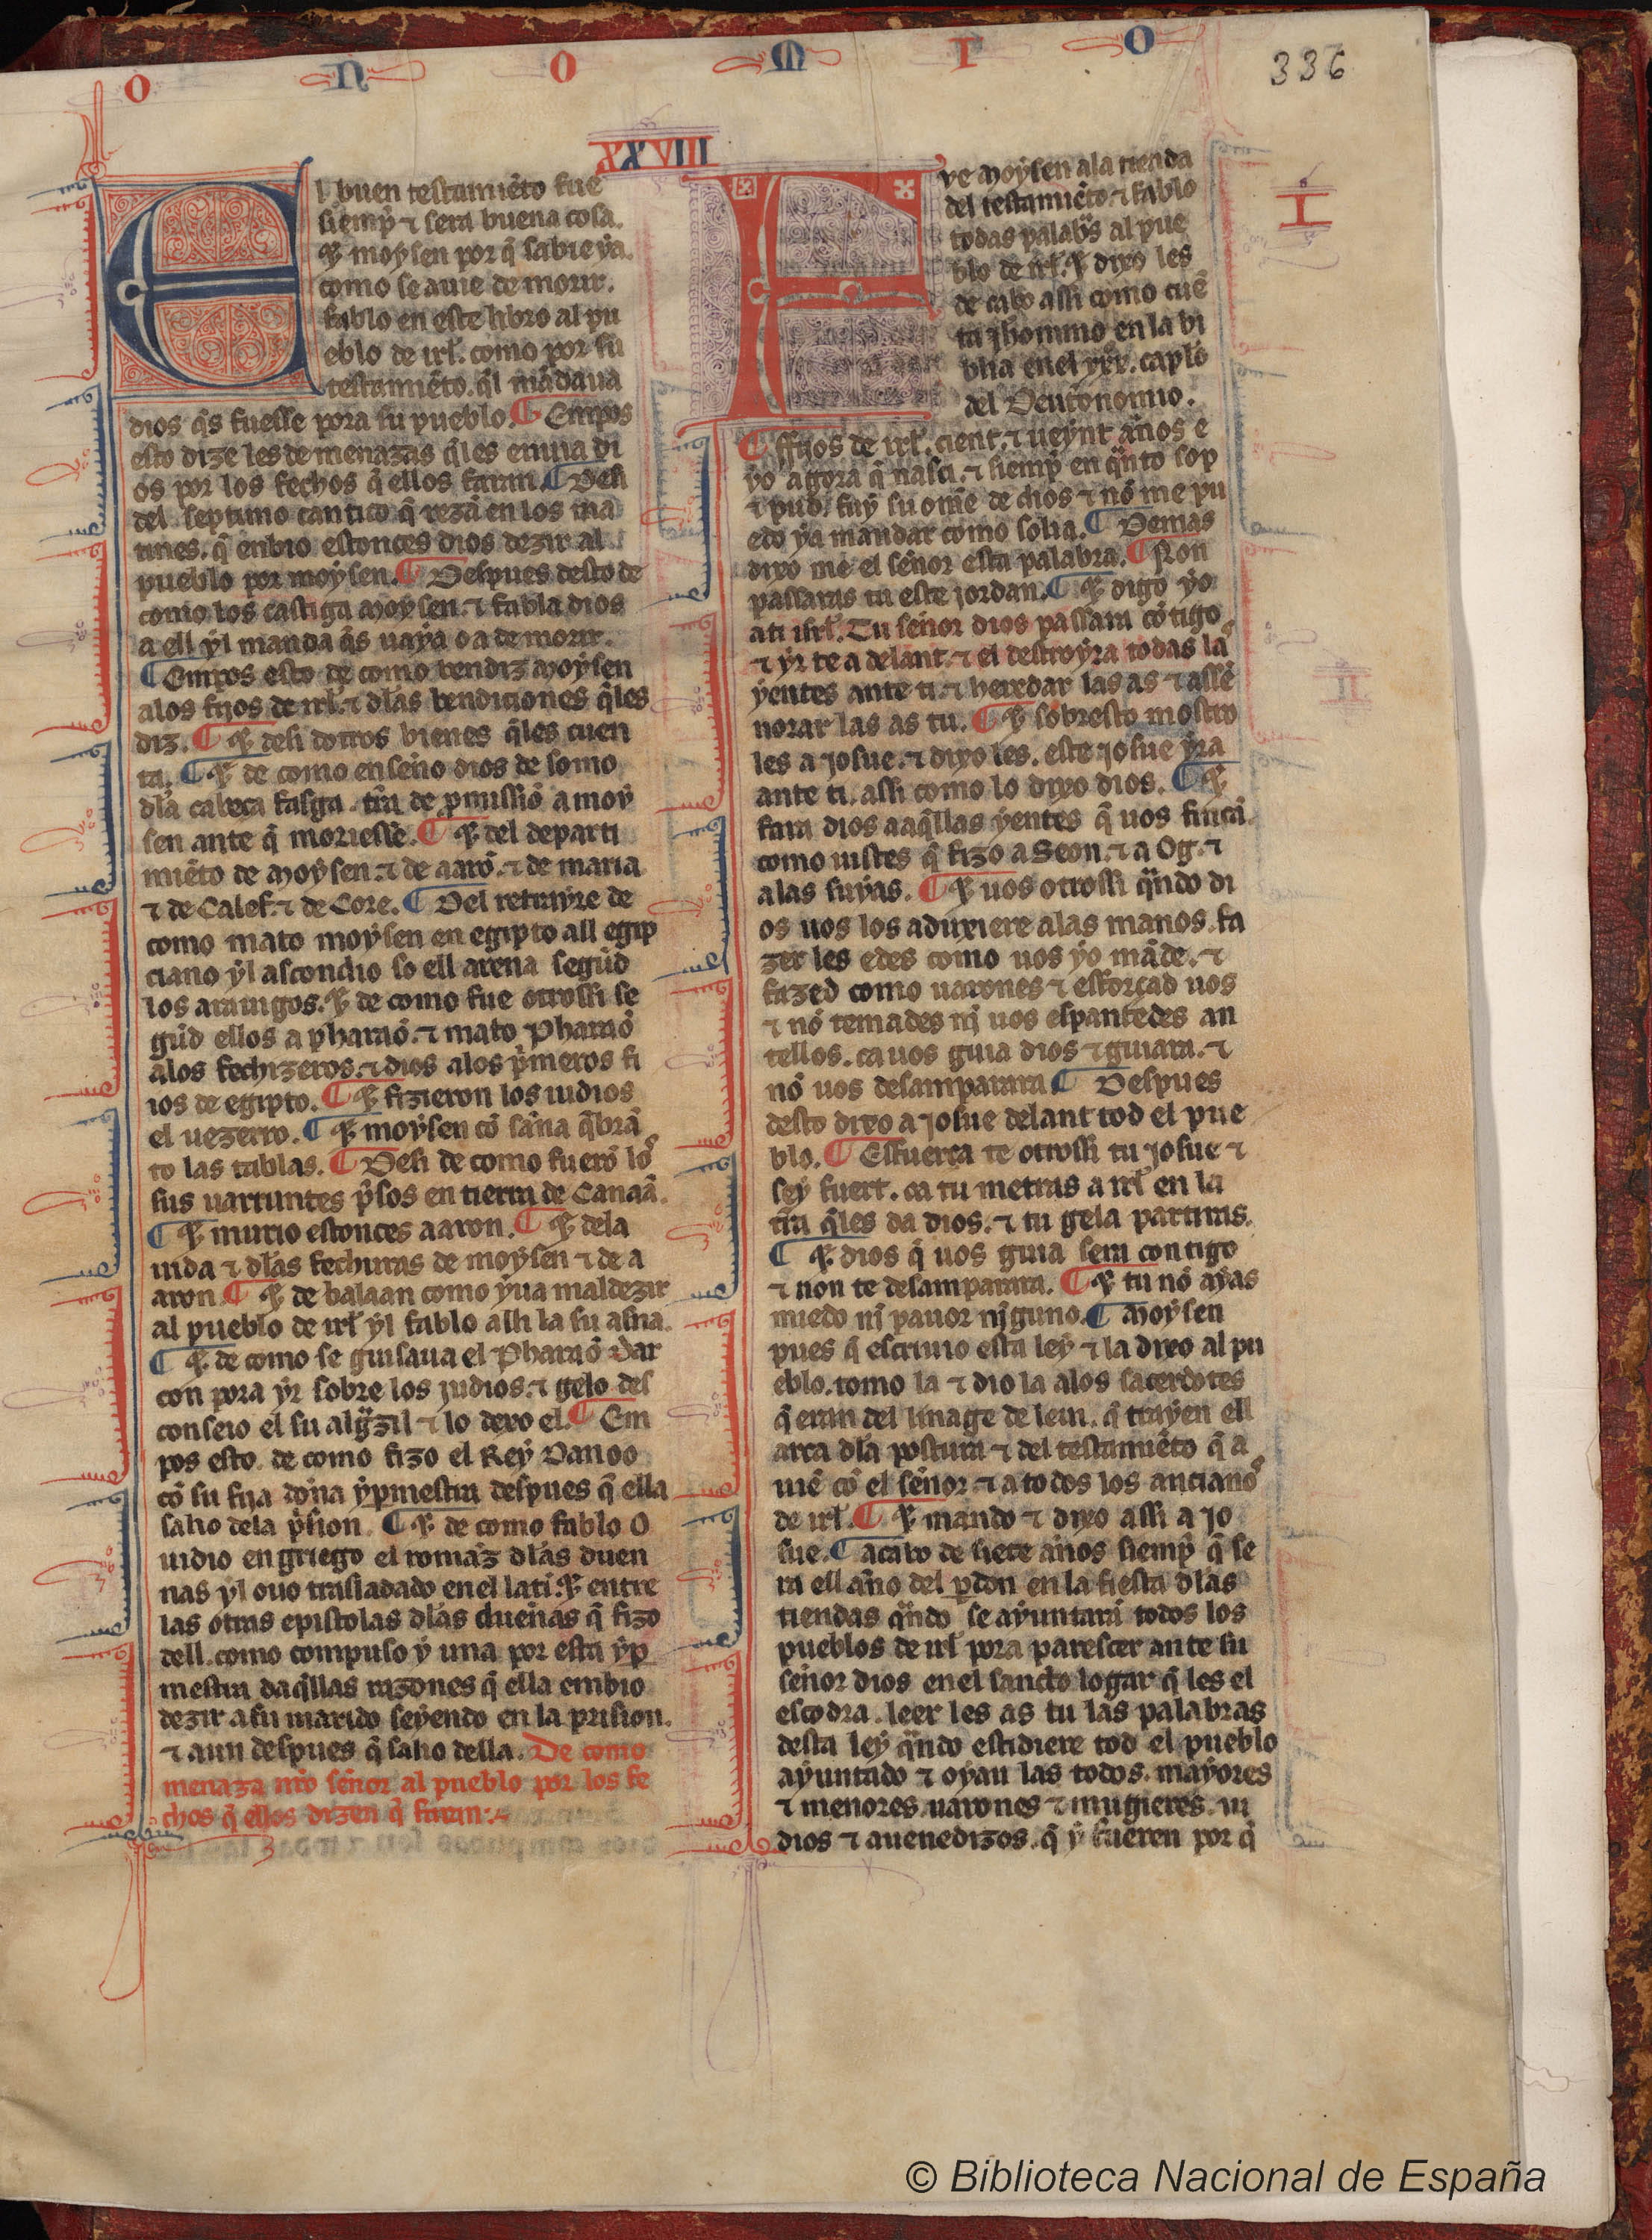 O N O M I O
336
XXVIII
El buen testamiẽto fue
siemp̃ ⁊ sera buena cosa.
⁊ moysen por q̃ sabie ya.
como se auie de morir.
fablo en este libro al pu
eblo de irł. como por su
testamiẽto. q̃l mãdaua
dios q̃s fuesse pora su pueblo. ¶ Empos
esto dize les de menazas q̃les enuia di
os por los fechos q̃ ellos faran. ¶ Desi
del septimo cantico q̃ rezã en los ma
tines. q̃ enbio estonces dios dezir al
pueblo por moysen. ¶ Despues desto de
como los castiga moysen. ⁊ fabla dios
a ell yl manda q̃s uaya o a de morir.
¶ Empos esto de como bendiz moysen
alos fijos de irł. ⁊ dlas bendiciones q̃les
diz. ¶ ⁊ desi dotros bienes q̃les cuen
ta. ¶ ⁊ de como enseño dios de somo
dla cabeça fasga. tr̃a de p̃missiõ a moy
sen ante q̃ moriesse. ¶ ⁊ del departi
miẽto de moysen. ⁊ de aarõ. ⁊ de maria
⁊ de Calef. ⁊ de Core. ¶ Del retrayre de
como mato moysen en egipto all egip
ciano yl ascondio so ell arena segũd
los arauigos. ⁊ de como fue otrossi se
gũd ellos a pharaõ. ⁊ mato Pharaõ
alos fechizeros. ⁊ dios alos p̃meros fi
ios de egipto. ¶ ⁊ fizieron los iudios
el uezerro. ¶ ⁊ moysen cõ saña q̃brã
to las tablas. ¶ Desi de como fuerõ lo^s
sus uarruntes p̃sos en tierra de Canaã.
¶ ⁊ murio estonces aaron. ¶ ⁊ dela
uida ⁊ dlas fechuras de moysen ⁊ de a
aron. ¶ ⁊ de balaan como yua maldezir
al pueblo de irł yl fablo alli la su asna.
¶ ⁊ de como se guisaua el Pharaõ Dar
con pora yr sobre los judios. ⁊ gelo des
conseio el su algͣzil ⁊ lo dexo el. ¶ Em
pos esto. de como fizo el Rey Danoo
cõ su fija doña yp̃mestra despues q̃ ella
salio dela p̃sion. ¶ ⁊ de como fablo O
uidio en griego el romãz dlas duen
nas yl ouo trasladado en el lati. ⁊ entre
las otras epistolas dlas dueñas q̃ fizo
dell. como compuso y una por esta yp
mestra daq̃llas razones q̃ ella embio
dezir a su marido seyendo en la prision.
⁊ aun despues q̃ salio della. De como
menaza nr̃o señor al pueblo por los fe
chos q̃ ellos dizen q̃ faran:
Fve moysen ala tienda
del testamiẽto. ⁊ fablo
todas palab̃s al pue
blo de irł. ⁊ dixo les
de cabo assi como cuẽ
ta jheronimo en la bi
blia en el xxx. caplo
del Deutronomio.
I
¶ ffijos de irł. cient. ⁊ ueynt años e
yo agora q̃ nasci. ⁊ siemp̃ en qͣnto sop
⁊ pud. fuy su om̃e de dios ⁊ nõ me pu
edo ya mandar como solia. ¶ Demas
dixo me el señor esta palabra. ¶ Non
passaras tu este jordan. ¶ ⁊ digo yo
ati isrł. Tu señor dios passara cõtigo
⁊ yr te a delant. ⁊ el destroyra todas la^s
yentes ante ti. ⁊ heredar las as ⁊ assẽ
norar las as tu. ¶ ⁊ sobresto mostro
les a josue. ⁊ dixo les. este josue yra
ante ti. assi como lo dixo dios. ¶ ⁊
fara dios aaq̃llas yentes q̃ uos fincã.
como uistes q̃ fizo a Seon. ⁊ a Og. ⁊
alas suyas. ¶ ⁊ uos otrossi qͣndo di
os uos los aduxiere alas manos. fa
zer les edes como uos yo mãde. ⁊
fazed como uarones ⁊ esforçad uos
⁊ nõ temades nj uos espantedes an
tellos. ca uos guia dios ⁊ guiara. ⁊
nõ uos desamparara. ¶ Despues
desto dixo a josue delant tod el pue
blo. ¶ Esfuerça te otrossi tu josue ⁊
sey fuert. ca tu metras a irł en la
tr̃a q̃les da dios. ⁊ tu gela partiras.
¶ ⁊ dios q̃ uos guia sera contigo
⁊ non te desamparara. ¶ ⁊ tu nõ ayas
miedo nj pauor njguno. ¶ Moysen
pues q̃ escriuio esta ley ⁊ la dixo al pu
eblo. tomo la ⁊ dio la alos sacerdotes
q̃ eran del linage de leui. q̃ trayen ell
arca dla postura ⁊ del testamiẽto q̃ a
uiẽ cõ el señor ⁊ a todos los anciano^s
de irł. ¶ ⁊ mando ⁊ dixo assi a jo
sue. ¶ Acabo de siete años siemp̃ q̃ se
ra ell año del p̃don en la fiesta dlas
tiendas qͣndo se ayuntarã todos los
pueblos de irł pora parescer ante su
señor dios en el sancto logar q̃ les el
escodra. leer les as tu las palabras
desta ley qͣndo estidiere tod el pueblo
ayuntado ⁊ oyan las todos. mayores
⁊ menores. uarones ⁊ mugieres. iu
dios ⁊ auenedizos. q̃ y fueren por q̃
© Biblioteca Nacional de España